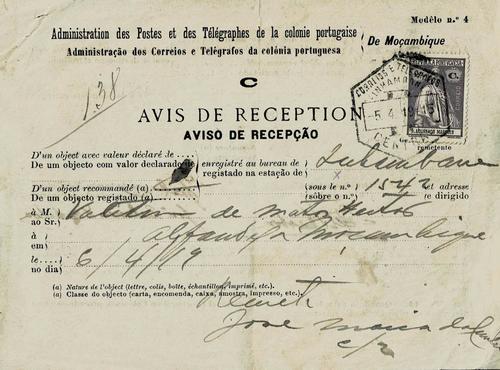 Modelo n.º 4
Administration des Postes et des Télégraphes de la colonie portugaise
Administração dos Correios e Telégrafos da colónia portuguesa
De Moçambique
138
C
CORREIOS E TELEGRAFOS
INHAMBANE
5. 4. 19
CENTRAL
REPUBLICA PORTUGUESA
C.
CORREIO
S. LOURENÇO MARQUES
AVIS DE RECEPTION
AVISO DE RECEPÇÃO
remetente
D'un object avec valeur déclaré de
De um objecto com valor declarado de
enregistré au bureau de
registado na estação de
Inhambane
D'un object recommandé (a)
De um objecto registado (a)
(sous le n.º)
(sôbre o n.º)
1542
et adresse
e dirigido
à M.
ao Sr.
de Matos
à
em
Alfandega Moçambique
le
no dia
6/4/19
(a) Nature de l'object (lettre, colis, boîte, échantillon, imprimé, etc.)
(a) Classe do objecto (carta, encomenda, caixa, amostra, impresso, etc.)
José Maria da